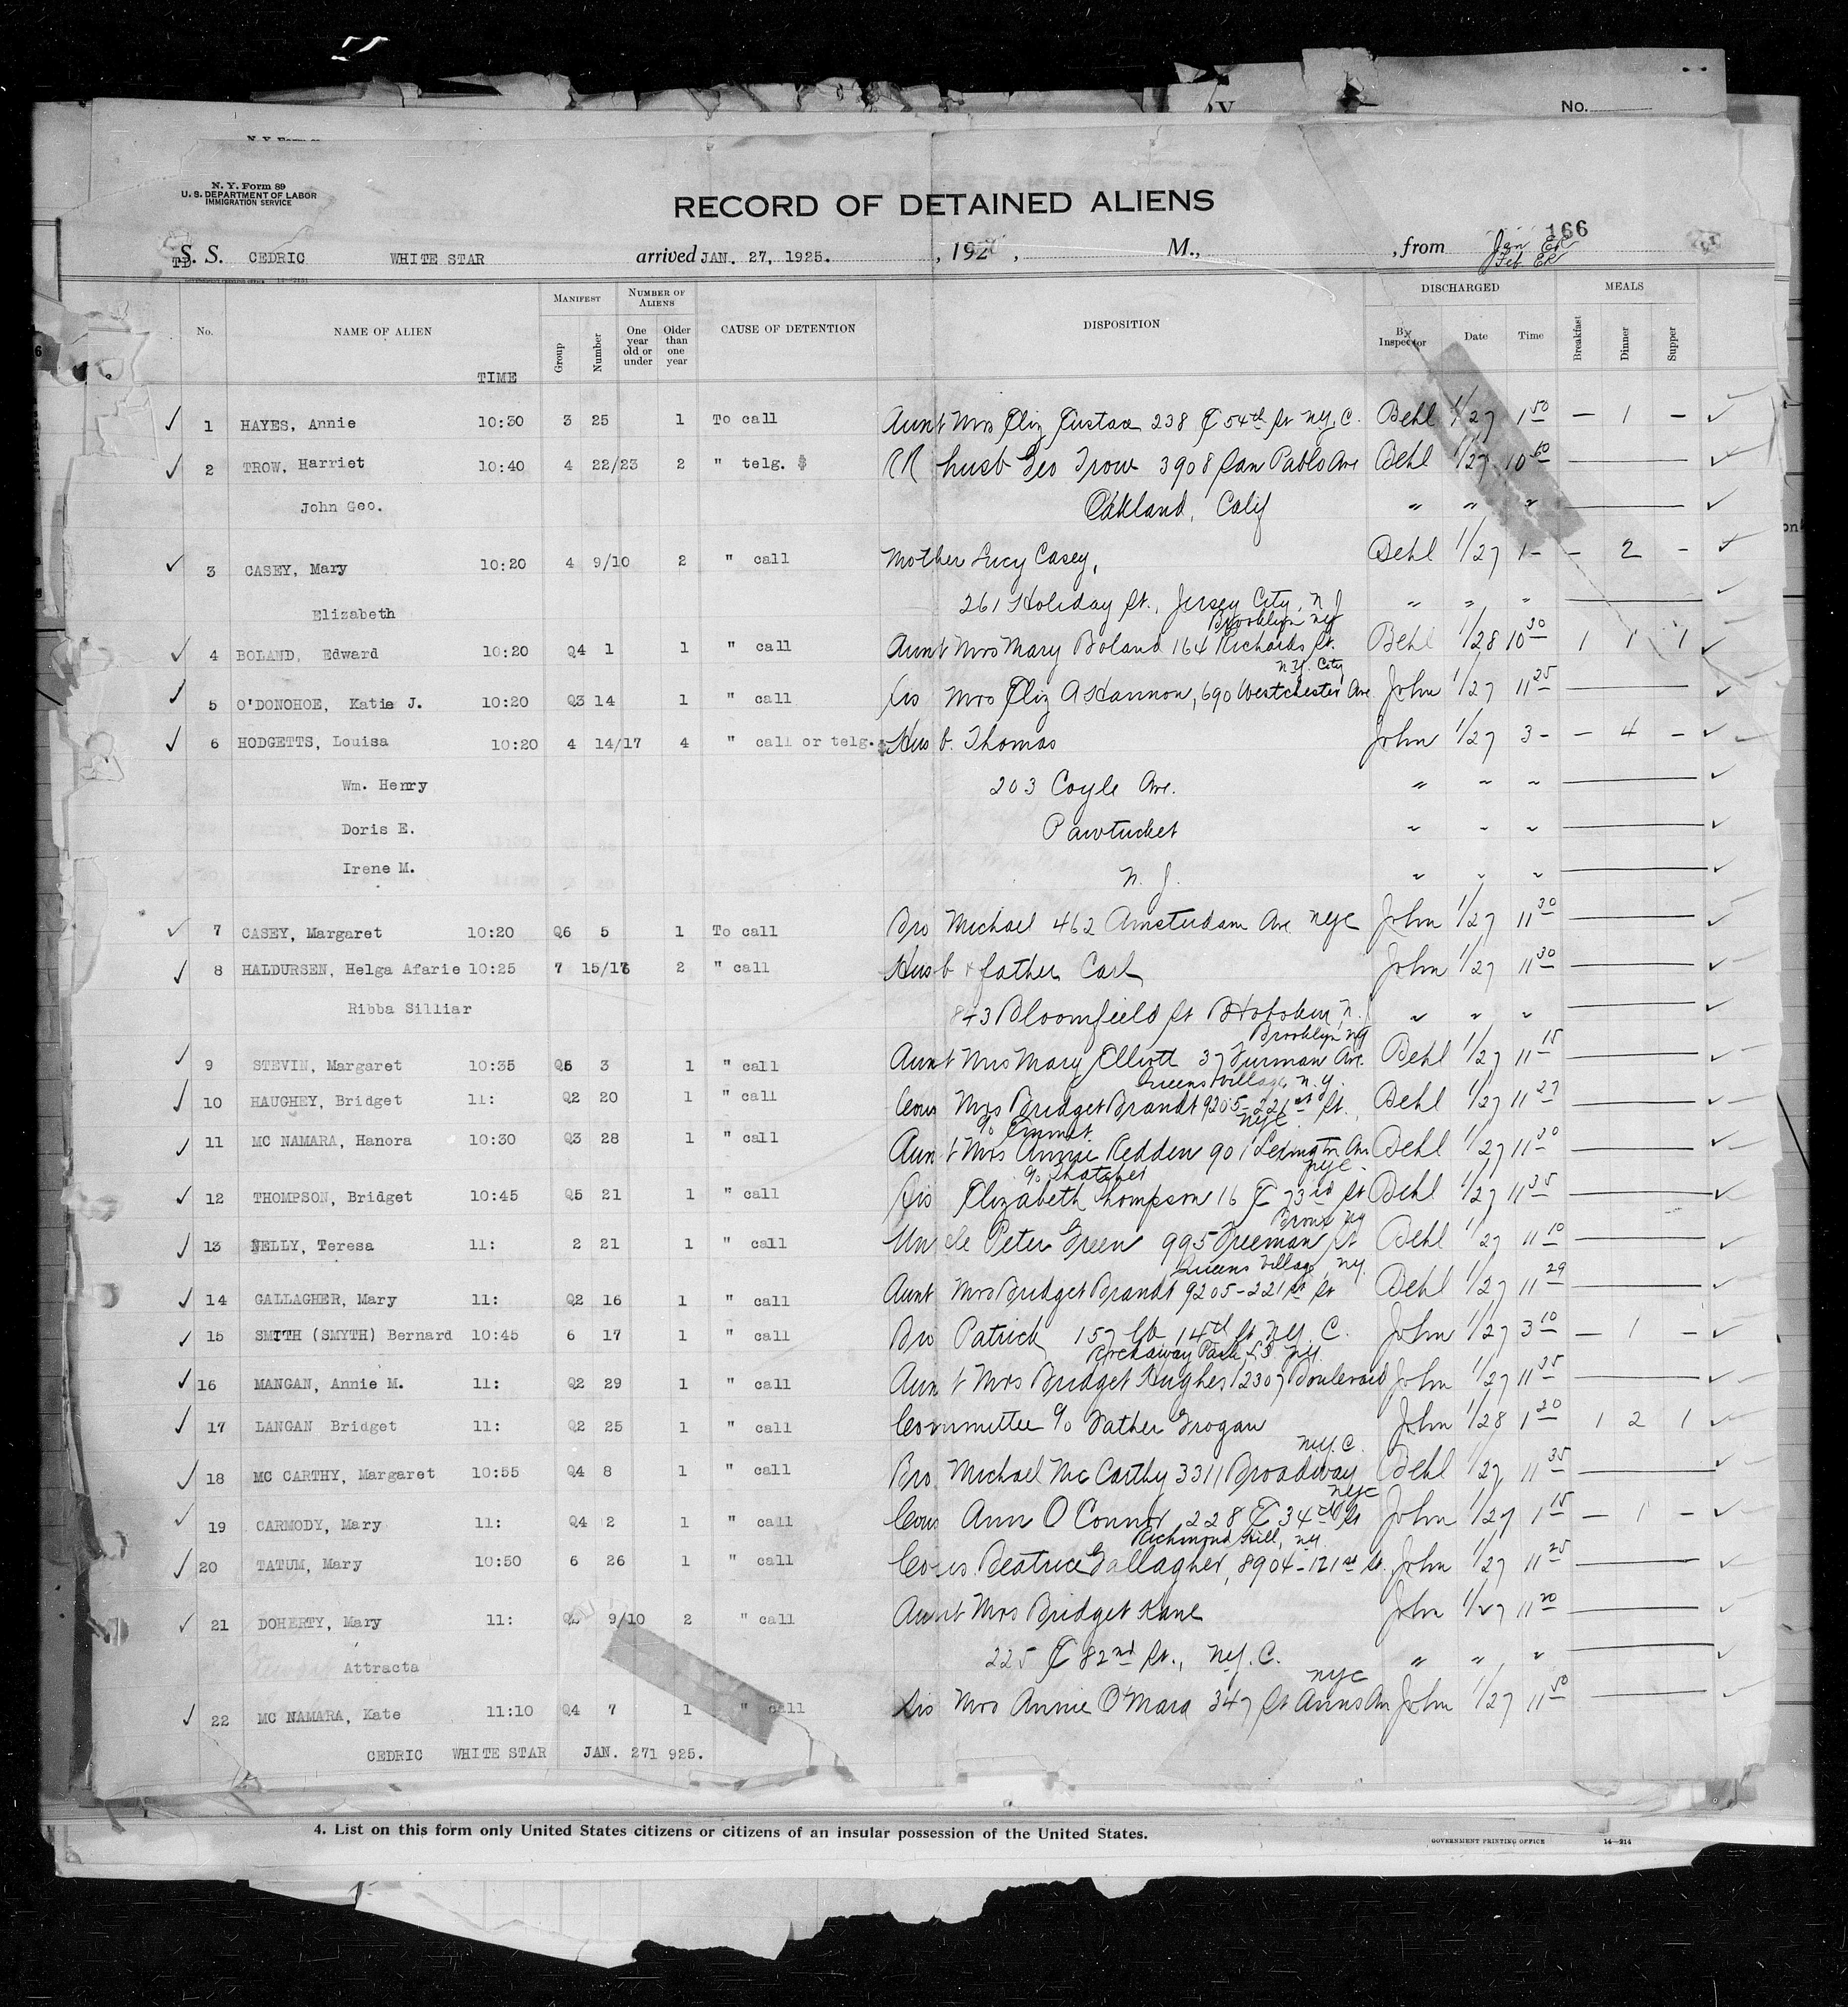 No.
N. Y. Form 89
U. S. DEPARTMENT OF LABOR
IMMIGRATION SERVICE
RECORD OF DETAINED ALIENS
166
S. S. CEDRIC WHITE STAR arrived JAN. 27, 1925. , 192 , M., , from Jan ER
Feb ER
No. NAME OF ALIEN TIME MANIFEST Group Number NUMBER OF ALIENS One year old or under Older than one year CAUSE OF DETENTION DISPOSITION DISCHARGED By Inspector Date Time MEALS Breakfast Dinner Supper
1 HAYES, Annie 10:30 3 25 1 To call Aunt Mrs Eliz Eustace 238 E 54th St NY.C. Behl 1/27 1 50 — 1 —
2 TROW, Harriet 10:40 4 22/23 2 " telg. RR husb Geo Trow 3908 San Pablo Ave Behl 1/27 10 50
John Geo. Oakland, Calif " " "
3 CASEY, Mary 10:20 4 9/10 2 " call Mother Lucy Casey, Behl 1/27 1 - - 2 -
Elizabeth 261 Holiday St., Jersey City, N J " " "
Brooklyn NY
4 BOLAND, Edward 10:20 Q4 1 1 " call Aunt Mrs Mary Boland 164 Richards St. Behl 1/28 10 30 1 1 1
N.Y. City
5 O'DONOHOE, Katie J. 10:20 Q3 14 1 " call Sis Mrs Eliz A Hannon, 690 Westchester Ave John 1/27 11 25
6 HODGETTS, Louisa 10:20 4 14/17 4 " call or telg. Husb. Thomas John 1/27 3 - - 4 -
Wm. Henry 203 Coyle Ave. " " "
Doris E. Pawtucket " " "
Irene M. N. J. " " "
7 CASEY, Margaret 10:20 Q6 5 1 To call Bro Michael 462 Amsterdam Ave NYC John 1/27 11 30
8 HALDURSEN, Helga Afarie 10:25 7 15/16 2 " call Husb & father Carl John 1/27 11 30
Ribba Silliar 843 Bloomfield St Hoboken N. J " " "
Brooklyn NY
9 STEVIN, Margaret 10:35 Q5 3 1 " call Aunt Mrs Mary Elliott 37 Furman Ave. Behl 1/27 11 15
Queens Village, N.Y.
10 HAUGHEY, Bridget 11: Q2 20 1 " call Cous Mrs Bridget Brandt 9205-221st St. Behl 1/27 11 27
c/o Emmet NYC
11 MC NAMARA, Hanora 10:30 Q3 28 1 " call Aunt Mrs Annie Redden 901 Lexington Ave Behl 1/27 11 30
c/o Thatcher NYC
12 THOMPSON, Bridget 10:45 Q5 21 1 " call Sis Elizabeth Thompson 16 E 73rd St Behl 1/27 11 35
Bronx NY
13 NELLY, Teresa 11: 2 21 1 " call Uncle Peter Green 995 Freeman St Behl 1/27 11 10
Queens Village NY.
14 GALLAGHER, Mary 11: Q2 16 1 " call Aunt Mrs Bridget Brandt 9205-221st St Behl 1/27 11 29
15 SMITH (SMYTH) Bernard 10:45 6 17 1 " call Bro Patrick 157 W 14th St NY. C. John 1/27 3 10 — 1 —
Rockaway Park L I NY.
16 MANGAN, Annie M. 11: Q2 29 1 " call Aunt Mrs Bridget Hughes 12307 Boulevard John 1/27 11 35
17 LANGAN Bridget 11: Q2 25 1 " call Committee c/o Father Grogan John 1/28 1 20 1 2 1
N.Y.C.
18 MC CARTHY, Margaret 10:55 Q4 8 1 " call Bro. Michael McCarthy 3311 Broadway Behl 1/27 11 35
NYC
19 CARMODY, Mary 11: Q4 2 1 " call Cous Ann O Connor, 228 E 34th St John 1/27 1 15 — 1 —
Richmond Hill, NY
20 TATUM, Mary 10:50 6 26 1 " call Cous. Beatrice Gallagher, 8904-121st St. John 1/27 11 25
21 DOHERTY, Mary 11: 9/10 2 " call Aunt Mrs Bridget Kane John 1/27 11 20
Attracta 225 E 82nd St., NY. C. " " "
NYC
22 MC NAMARA, Kate 11:10 Q4 7 1 " call Sis Mrs Annie O'Mara 347 St Anns Av John 1/27 11 50
CEDRIC WHITE STAR JAN. 271 925.
4. List on this form only United States citizens or citizens of an insular possession of the United States.
GOVERNMENT PRINTING OFFICE 14—214